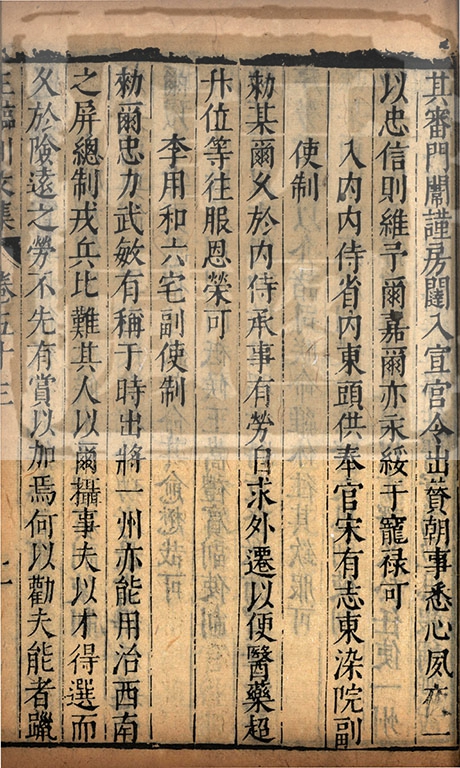 其審門闈謹房闥入宜官令出贊朝事悉心夙夜一
以忠信則維予爾嘉爾亦永綏于寵祿可
入内内侍省内東頭供奉官宋有志東染院副
使制
勑某爾久於内侍承事有勞自求外遷以便醫藥超
升位等往服恩榮可
李用和六宅副使制
勑爾忠力武敏有稱于時出將一州亦能用治西南
之屏總制戎兵比難其人以爾攝事夫以才得選而
久於險遠之勞不先有賞以加焉何以勸夫能者躐
王臨川文集 卷五十三